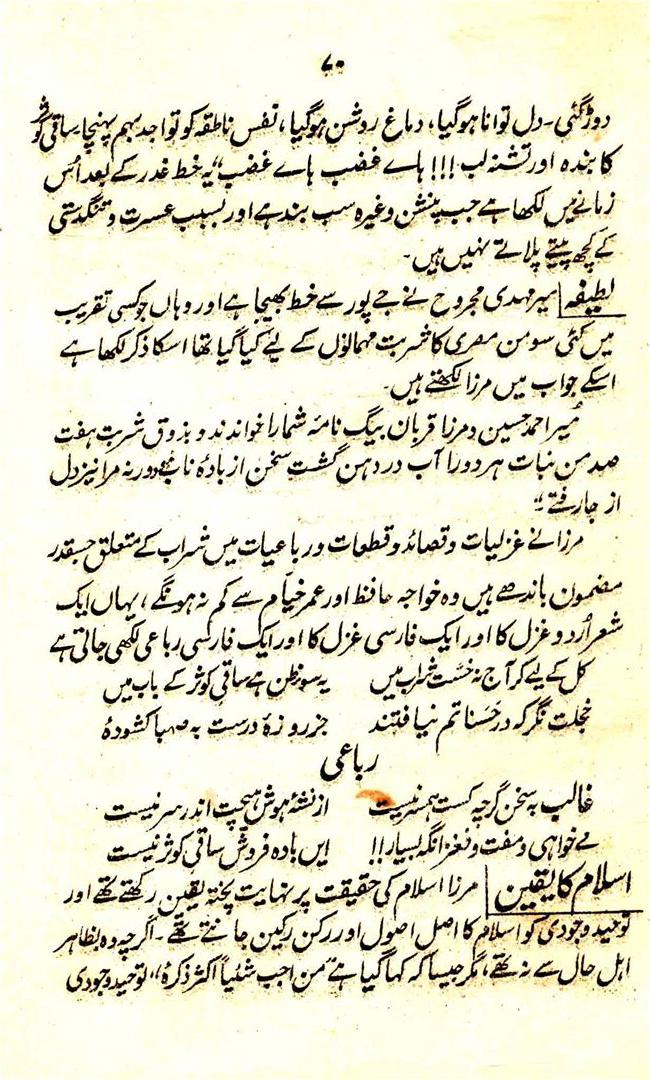 ۷۰
دوڑ گئی۔ دل توانا ہو گیا، دماغ روشن ہو گیا، نفس ناطقہ کو تواجد بہم پہنچا۔ ساقی کوثر
کا بندہ اور تشنہ لب!!! ہاے غضب ہاے غضب“ یہ خط غدر کے بعد اُس
زمانے میں لکھا ہے جب پنشن وغیرہ سب بند ہے اور بسبب عسرت و تنگدستی
کے کچھ پیتے پلاتے نہیں ہیں۔
لطیفہ میر مہدی مجروح نے جے پور سے خط بھیجا ہے اور وہاں جو کسی تقریب
میں کئی سو من مصری کا شربت مہمانوں کے لیے کیا گیا تھا اسکا ذکر لکھا ہے
اسکے جواب میں مرزا لکھتے ہیں۔
میر احمد حسین و مرزا قربان بیگ نامۂ شما را خواندند و بذوق شربت ہفت
صد من نبات ہر دو را آب در دہن گشت سخن از بادۂ ناب نبود ورنہ مرا نیز دل
از جا رفتے“
مرزا نے غزلیات و قصائد و قطعات و رباعیات میں شراب کے متعلق جسقدر
مضمون باندھے ہیں وہ خواجہ حافظ اور عمر خیام سے کم نہ ہونگے، یہاں ایک
شعر اُردو غزل کا اور ایک فارسی غزل کا اور ایک فارسی رباعی لکھی جاتی ہے
کل کے لیے کر آج نہ خسّت شراب میں یہ سوء ظن ہے ساقی کوثر کے باب میں
خجلت نگر کہ در حسناتم نیافتند جز روزۂ درست بہ صہبا کشودۂ
رباعی
غالب بہ سخن گرچہ کست ہمسر نیست از نشۂ ہوش ہیچت اندر سر نیست
مے خواہی و مفت و نغز انگہ بسیار!! ایں بادہ فروش ساقی کوثر نیست
اسلام کا یقین مرزا اسلام کی حقیقت پر نہایت پختہ یقین رکھتے تھے اور
توحید وجودی کو اسلام کا اصل اصول اور رکن رکین جانتے تھے۔ اگرچہ وہ بظاہر
اہل حال سے نہ تھے، مگر جیسا کہ کہا گیا ہے ”من احب شئیاً اکثر ذکرہٗ“ توحید وجودی